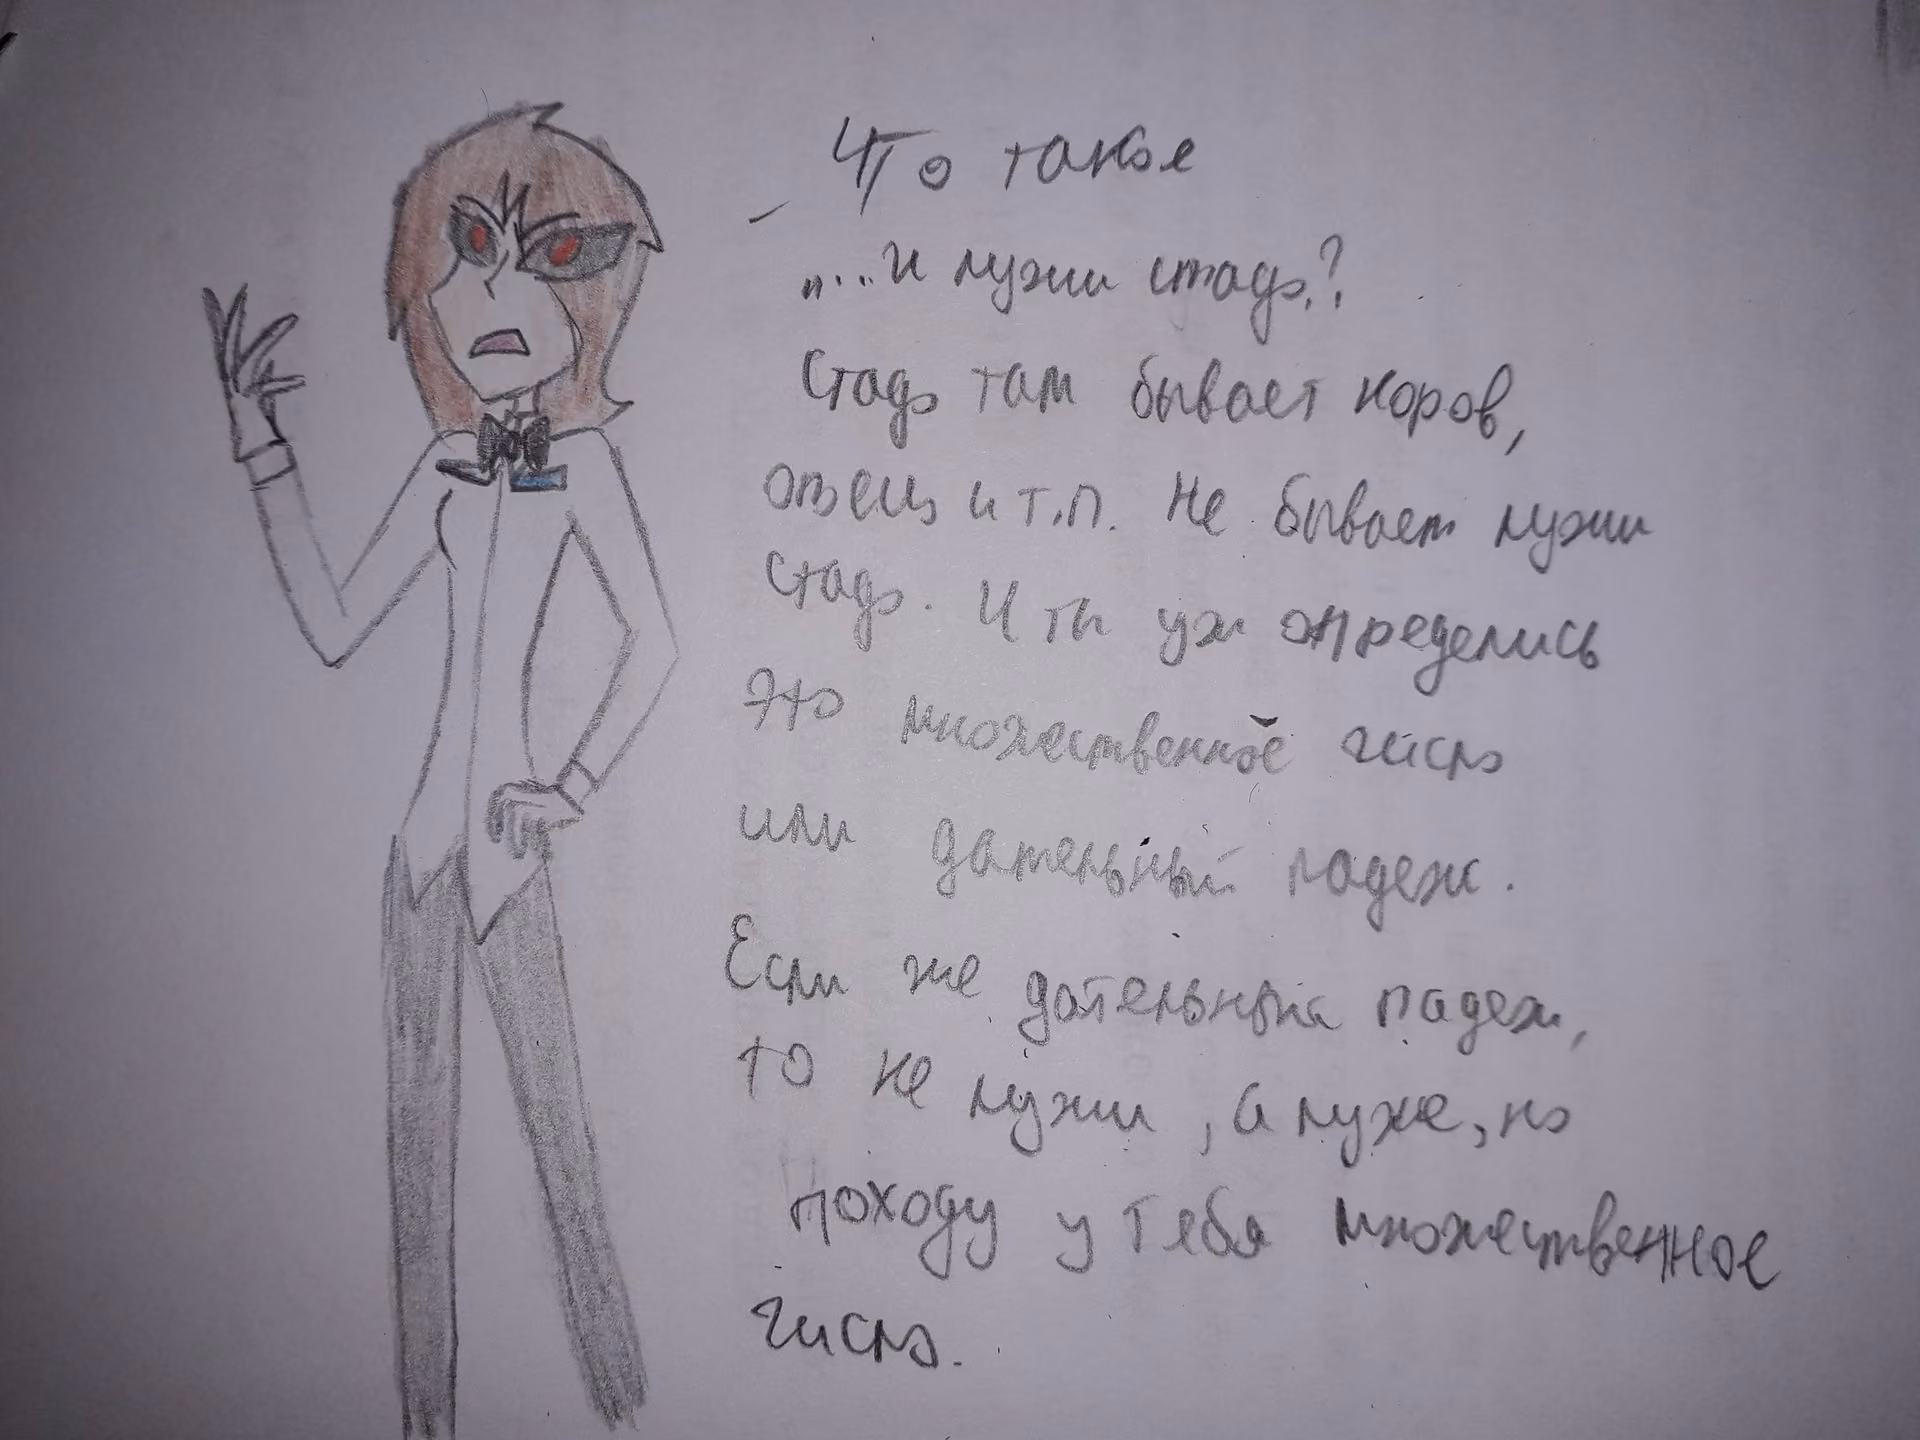 Что такое
„...и лужи стадо?
Стадо там бывает коров,
овец и т.п. Не бывает лужи
стадо. И ты уж определись
это множественное число
или дательный падеж.
Если же дательный падеж,
то не лужи, а луже, но
походу у тебя множественное
число.